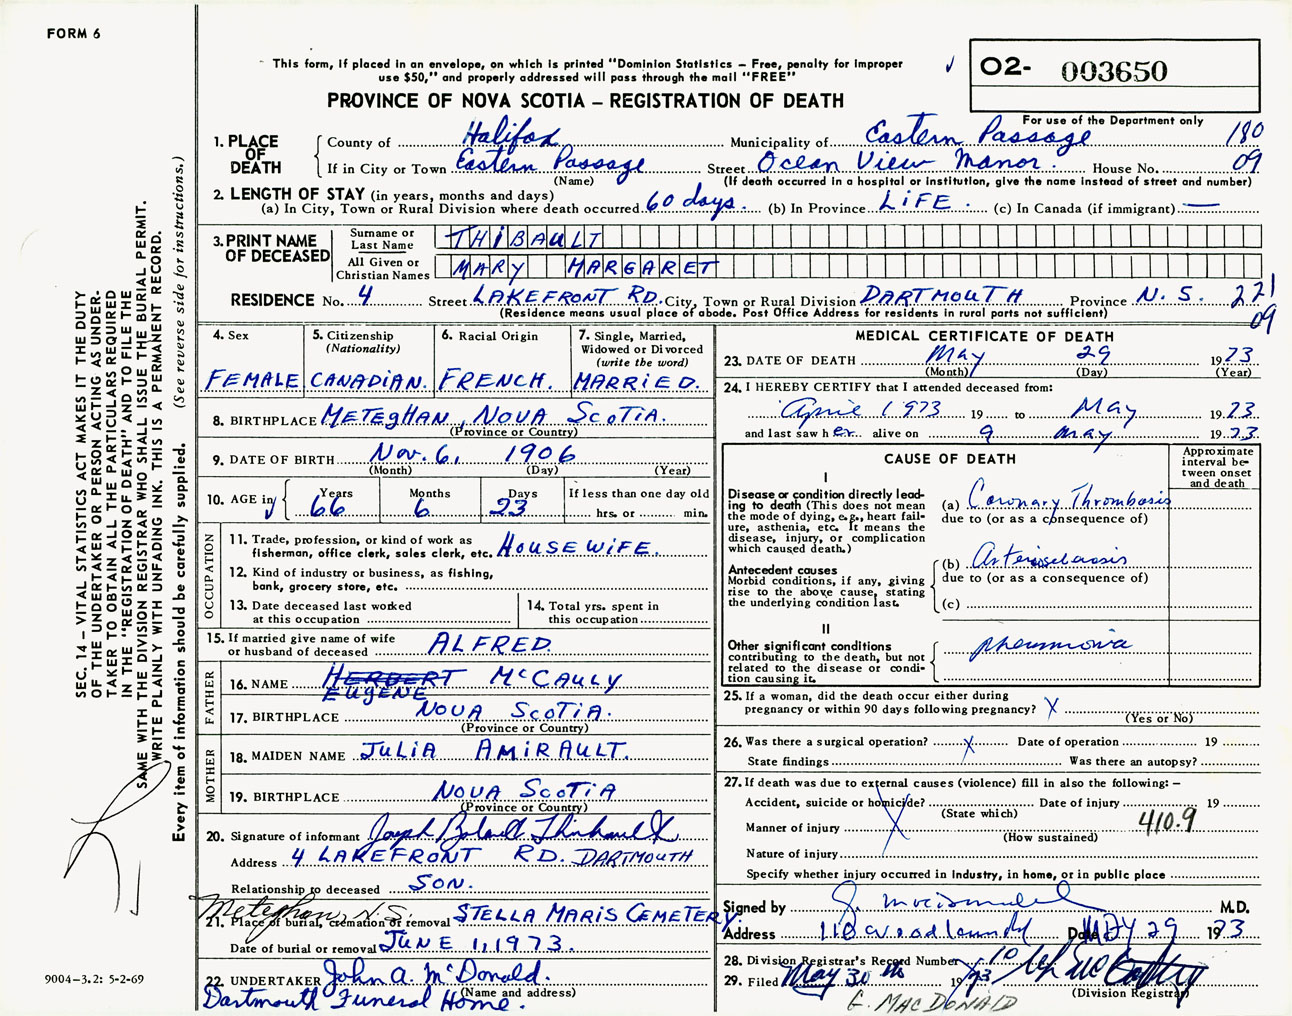 FORM 6
This form, if placed in an envelope, on which is printed "Dominion Statistics – Free, penalty for improper
use $50," and properly addressed will pass through the mail "FREE"
O2- 003650
For use of the Department only
PROVINCE OF NOVA SCOTIA – REGISTRATION OF DEATH
1. PLACE OF DEATH
County of Halifax Municipality of Eastern Passage 180
If in City or Town Eastern Passage Street Ocean View Manor. House No. 09
(Name) (If death occurred in a hospital or institution, give the name instead of street and number)
2. LENGTH OF STAY (in years, months and days)
(a) In City, Town or Rural Division where death occurred 60 days. (b) In Province LIFE. (c) In Canada (if immigrant) —
3. PRINT NAME OF DECEASED
Surname or Last Name THIBAULT
All Given or Christian Names MARY MARGARET
RESIDENCE No. 4 Street LAKEFRONT RD. City, Town or Rural Division DARTMOUTH Province N. S. 221
(Residence means usual place of abode. Post Office Address for residents in rural parts not sufficient) 09
4. Sex FEMALE
5. Citizenship (Nationality) CANADIAN.
6. Racial Origin FRENCH.
7. Single, Married, Widowed or Divorced (write the word) MARRIED.
8. BIRTHPLACE METEGHAN, NOVA SCOTIA.
(Province or Country)
9. DATE OF BIRTH Nov. 6, 1906
(Month) (Day) (Year)
10. AGE in Years 66 Months 6 Days 23 If less than one day old
hrs. or min.
OCCUPATION
11. Trade, profession, or kind of work as
fisherman, office clerk, sales clerk, etc. HOUSEWIFE.
12. Kind of industry or business, as fishing,
bank, grocery store, etc.
13. Date deceased last worked
at this occupation
14. Total yrs. spent in
this occupation
15. If married give name of wife
or husband of deceased ALFRED.
FATHER
16. NAME HERBERT McCAULY
EUGENE
17. BIRTHPLACE NOVA SCOTIA.
(Province or Country)
MOTHER
18. MAIDEN NAME JULIA AMIRAULT.
19. BIRTHPLACE NOVA SCOTIA
(Province or Country)
20. Signature of informant Joseph
Address 4 LAKEFRONT RD. DARTMOUTH
Relationship to deceased SON.
Meteghan, N.S.
21. Place of burial, cremation or removal STELLA MARIS CEMETERY.
Date of burial or removal JUNE 1, 1973.
22. UNDERTAKER John A. McDonald.
(Name and address)
Dartmouth Funeral Home.
MEDICAL CERTIFICATE OF DEATH
23. DATE OF DEATH May 29 1973
(Month) (Day) (Year)
24. I HEREBY CERTIFY that I attended deceased from:
April 1973 19 to May 1973
and last saw her alive on 9 May 1973.
CAUSE OF DEATH
Approximate interval between onset and death
I
Disease or condition directly leading to death (This does not
mean the mode of dying, e.g., heart failure, asthenia, etc. It means the
disease, injury, or complication
which caused death.)
(a) Coronary Thrombosis
due to (or as a consequence of)
Antecedent causes
Morbid conditions, if any, giving
rise to the above cause, stating
the underlying condition last.
(b) Arteriosclerosis
due to (or as a consequence of)
(c)
II
Other significant conditions
contributing to the death, but not
related to the disease or condition causing it.
pneumonia
25. If a woman, did the death occur either during
pregnancy or within 90 days following pregnancy? X
(Yes or No)
26. Was there a surgical operation? X Date of operation 19
State findings Was there an autopsy?
27. If death was due to external causes (violence) fill in also the following: –
Accident, suicide or homicide? Date of injury 19
(State which)
Manner of injury X 410.9
(How sustained)
Nature of injury
Specify whether injury occurred in Industry, in home, or in public place
Signed by M.D.
Address 110 Woodlawn Rd Date MAY 29 1973
28. Division Registrar's Record Number 10
29. Filed May 30th 1973
(Division Registrar)
G. MACDONALD
SEC. 14 – VITAL STATISTICS ACT MAKES IT THE DUTY
OF THE UNDERTAKER OR PERSON ACTING AS UNDER-
TAKER TO OBTAIN ALL THE PARTICULARS REQUIRED
IN THE "REGISTRATION OF DEATH" AND TO FILE THE
SAME WITH THE DIVISION REGISTRAR WHO SHALL ISSUE THE BURIAL PERMIT.
WRITE PLAINLY WITH UNFADING INK. THIS IS A PERMANENT RECORD.
Every item of information should be carefully supplied. (See reverse side for instructions.)
9004–3.2: 5-2-69